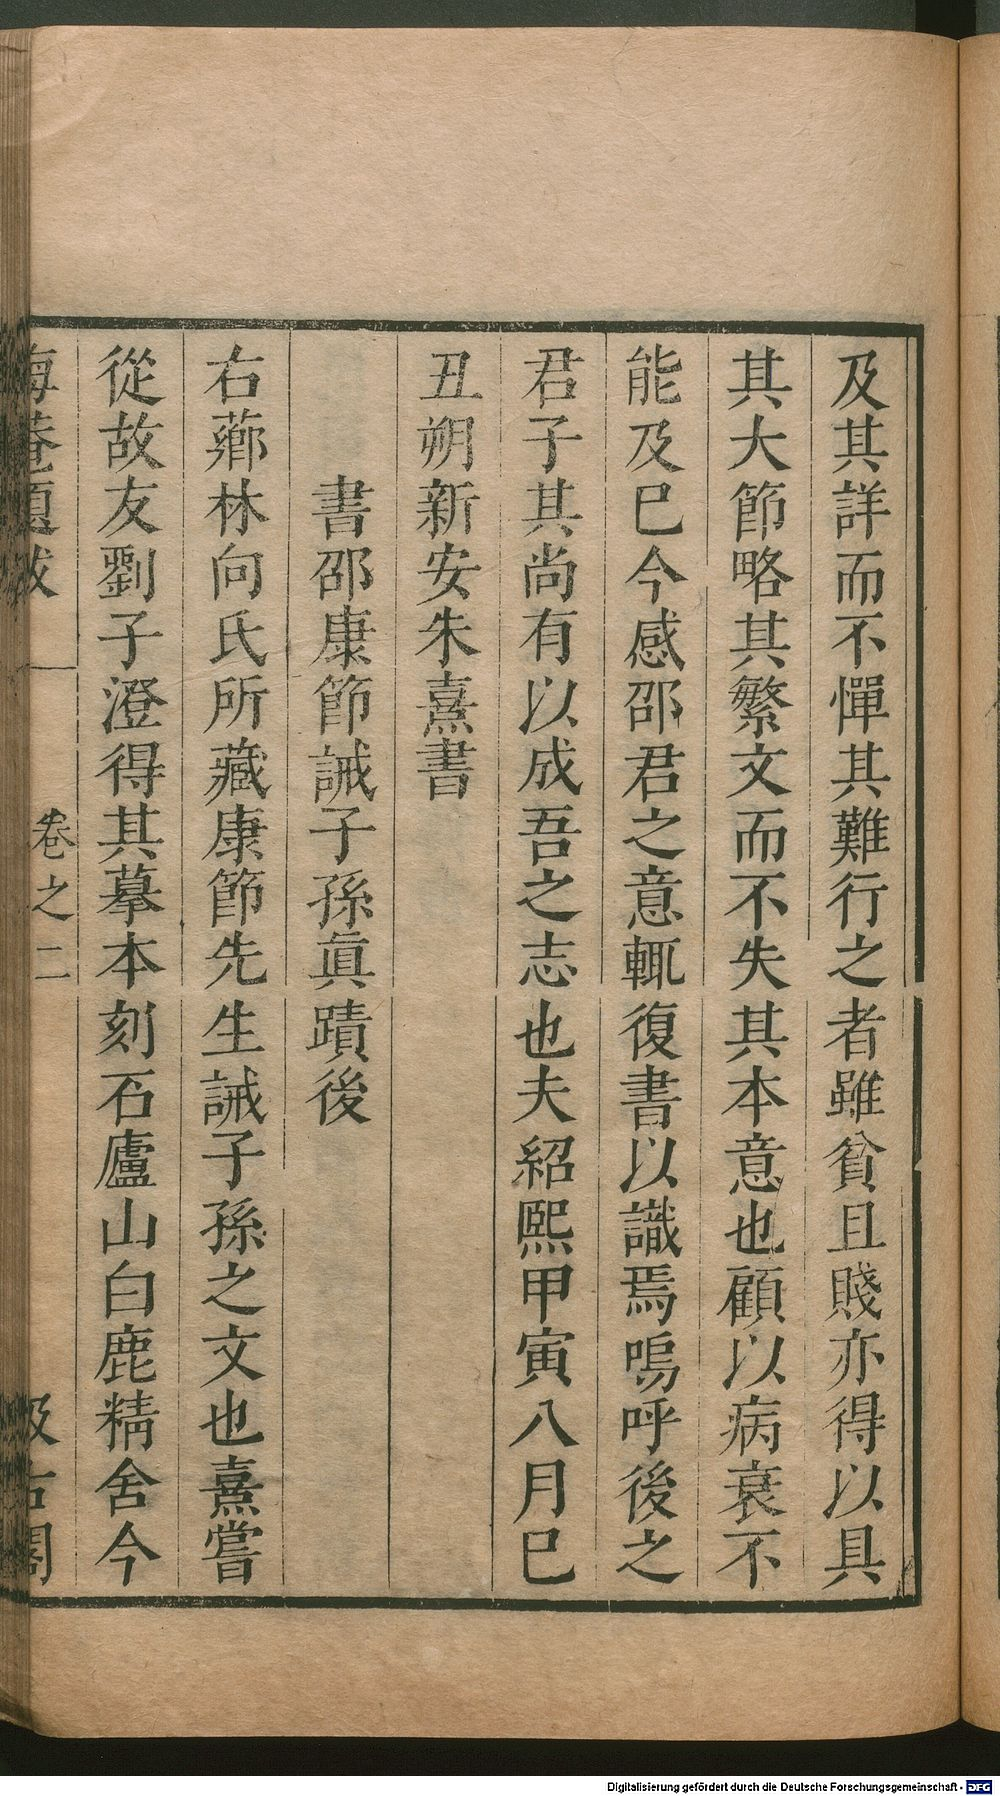 及其詳而不憚其難行之者雖貧且賤亦得以具
其大節略其繁文而不失其本意也顧以病衰不
能及巳今感邵君之意輒復書以識焉嗚呼後之
君子其尚有以成吾之志也夫紹熙甲寅八月巳
丑朔新安朱熹書
書邵康節誡子孫眞蹟後
右薌林向氏所藏康節先生誡子孫之文也熹嘗
從故友劉子澄得其摹本刻石廬山白鹿精舍今
海菴題跋
卷之二
汲古閣
Digitalisierung gefördert durch die Deutsche Forschungsgemeinschaft - DFG